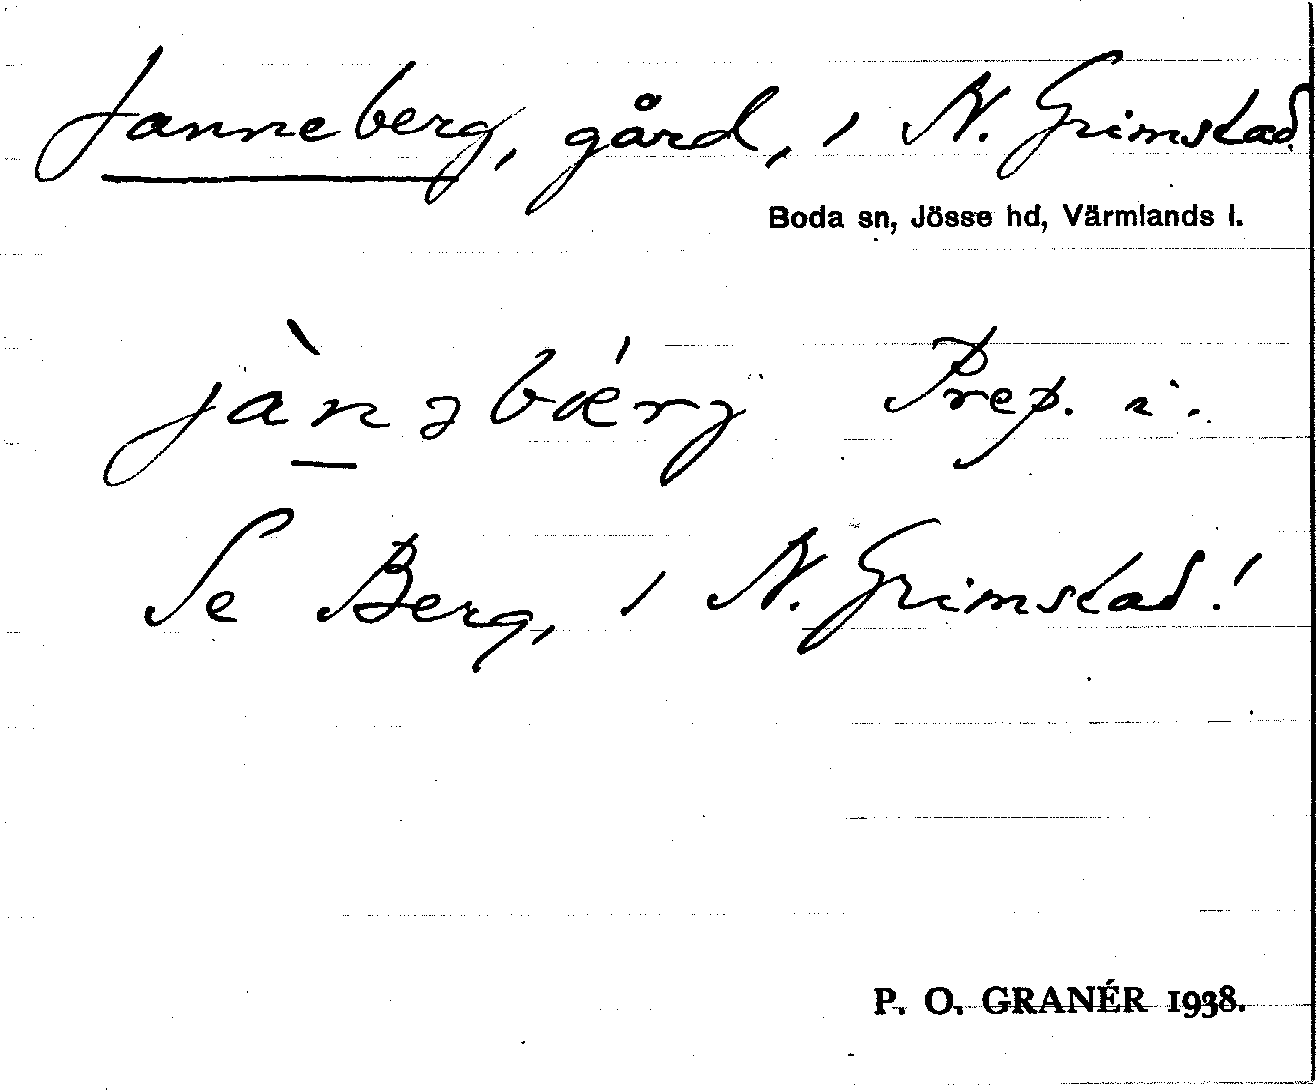 Janneberg, gård, i N. Grimstad
Boda sn, Jösse hd, Värmlands l.
jàn̲əbǽrj Prep. i.
Se Berg, i N. Grimstad!
P. O. GRANÉR 1938.